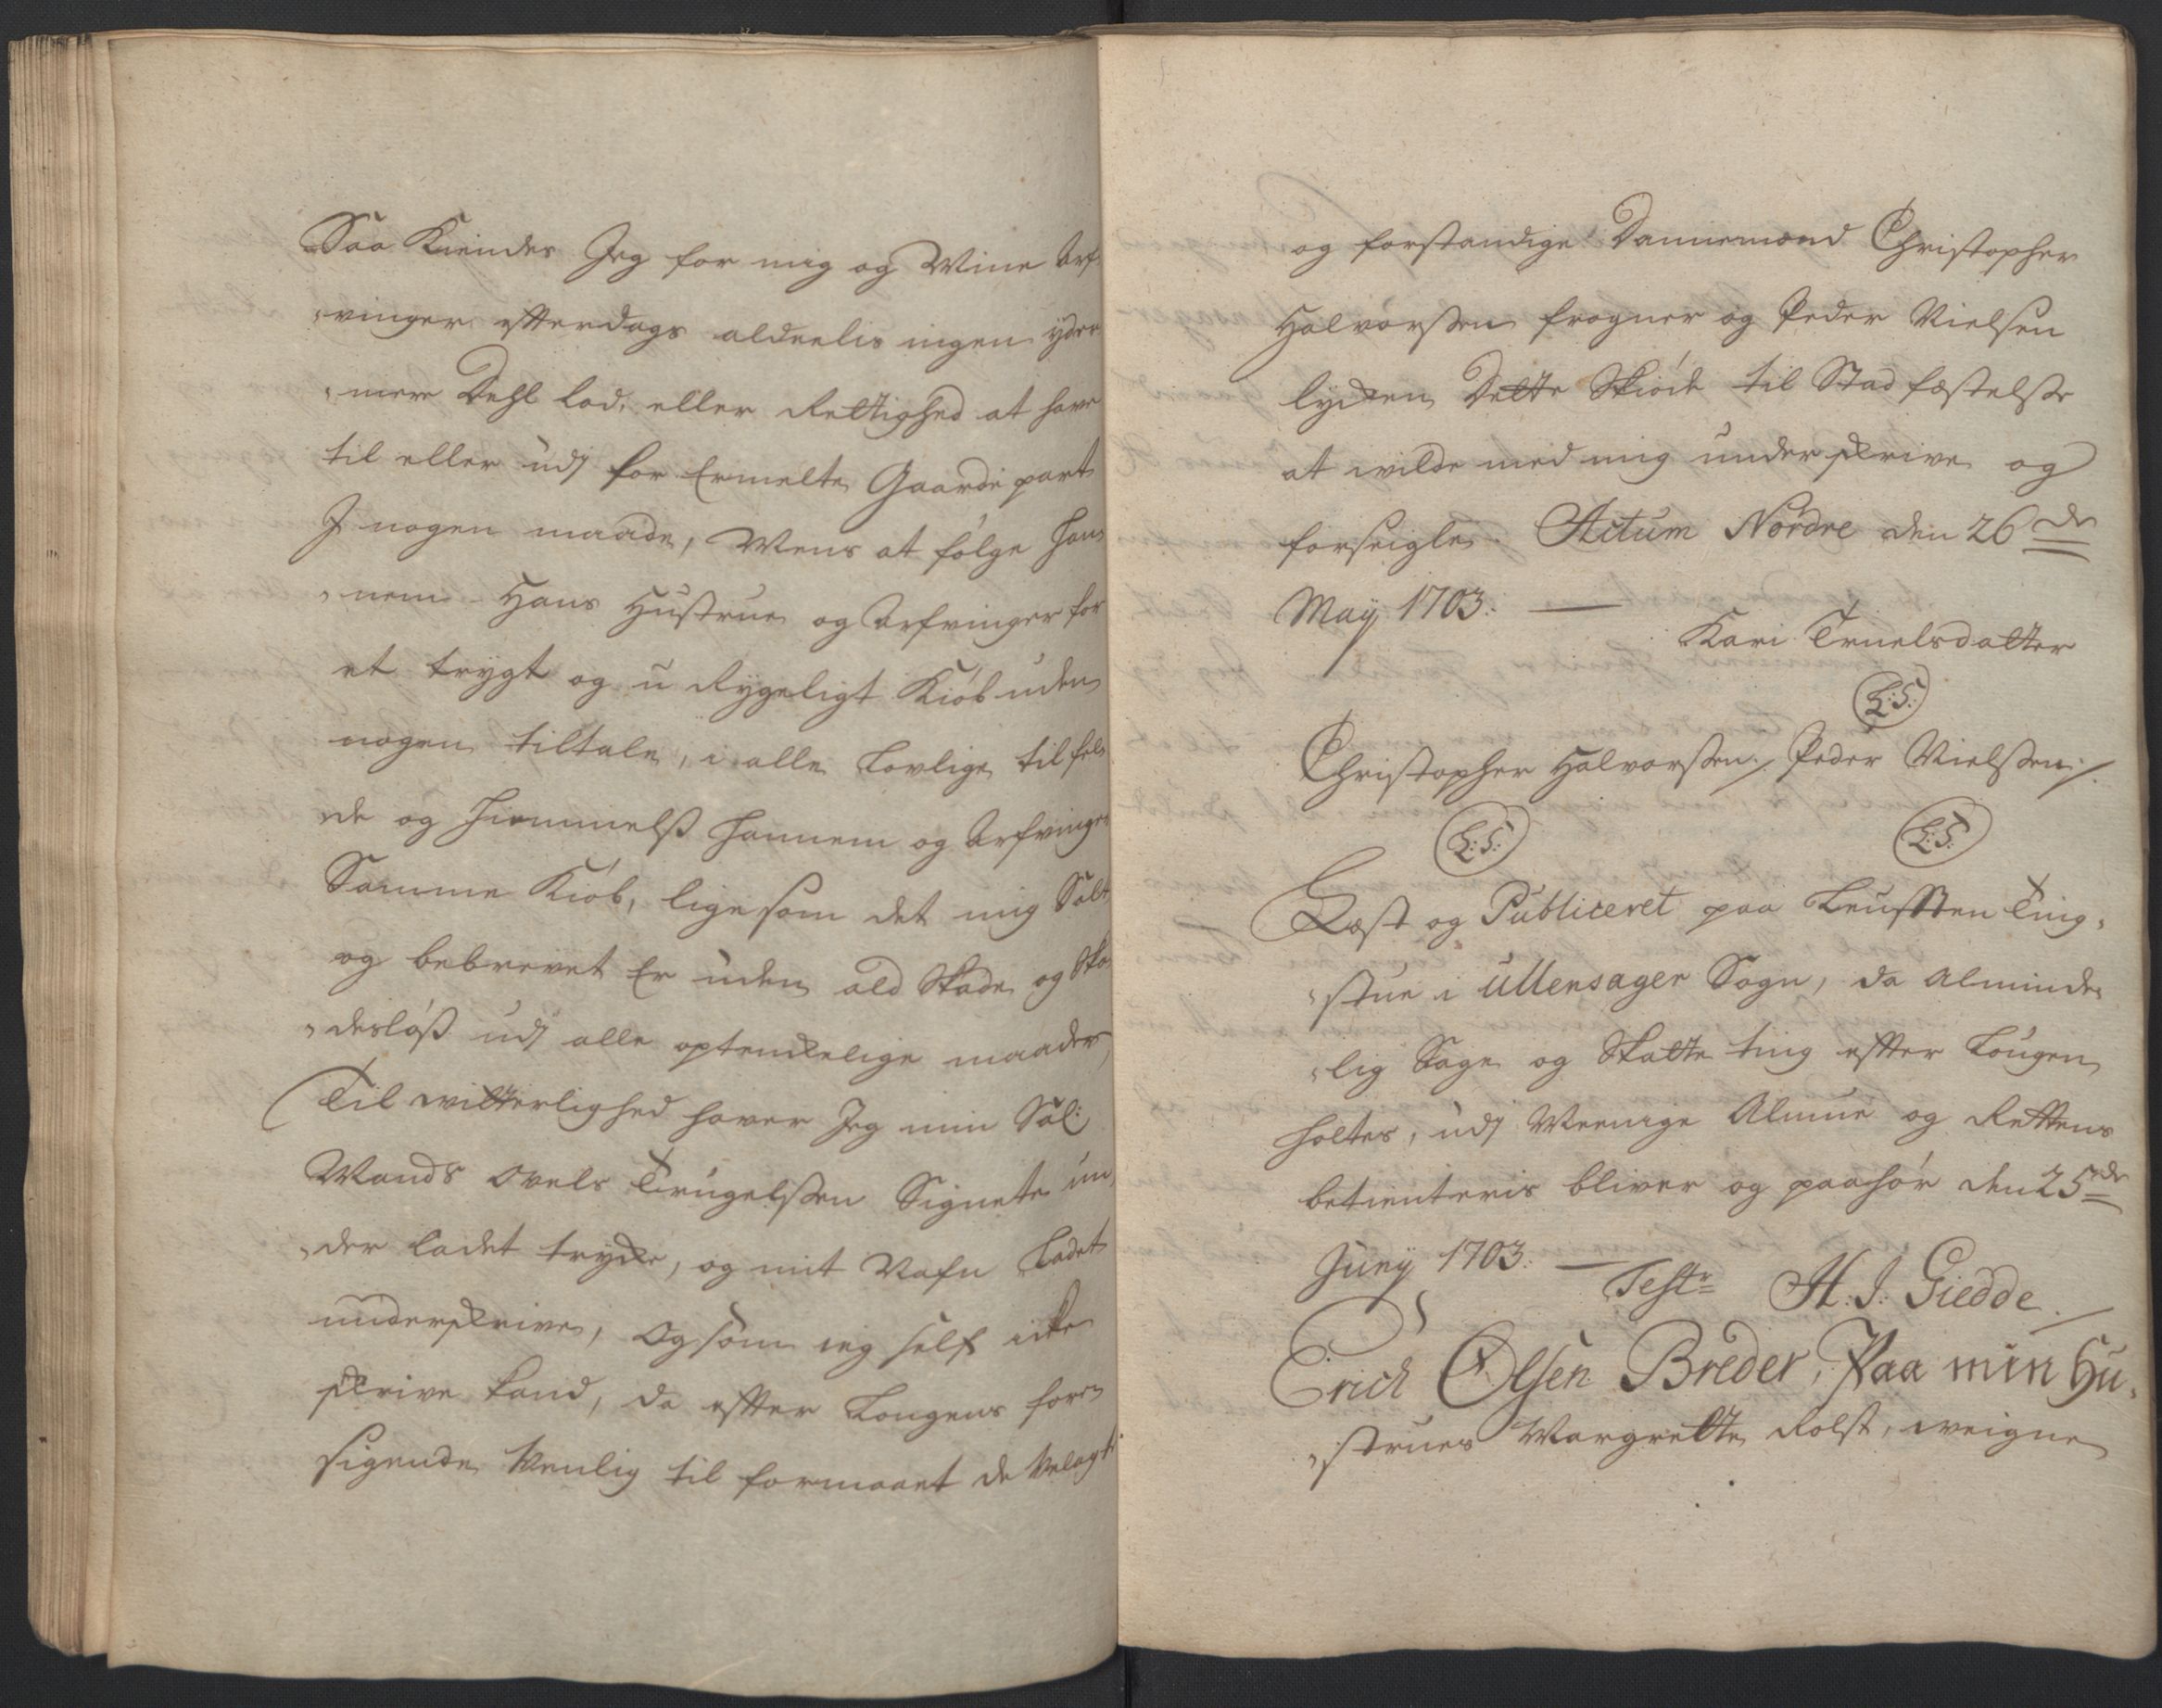 Saa Kiendes Jeg for mig og Mine Arf-
"vinger effterdags aldeelis ingen yder
"mere Dehl Lod, eller Rettighed at have
til eller udj for Ermelte Gaarde part
J nogen maade, Mens at følge han
"nem Hans Hustrue og Arfvinger for
et trygt og u Rygeligt Kiöb uden
nogen tiltale, i alle Lovlige til fel
de og hiemmelß hannem og Arfvinger
Samme Kiöb, ligesom det mig Solt
og bebrevet Er uden ald Skade og Ska
"deslöß udj alle optenckelige maader
Til witterlighed haver Jeg min Sal:
Mands Ovels Trugelßen Signete un
"der ladet trycke, og mit Nafn Ladet
underskrive, Og som ieg self icke
skrive kand, da effter Lougens for
sigende Venlig til formaaet de Velagt
og forstandige Dannemænd Christopher
Halvorßen frogner og Peder Nielsen
lycken Dette Skiöde til Stadfæstelße
at wilde med mig underskrive og
forseigle. Actum Nordre den 26de
Maÿ 1703.
Kari Truelsdatter
L:S:
Christopher Halvorßen./. Peder Nielßen./.
L:S: L:S:
Læst og Publiceret paa Ting-
"stue i Ullensager Sogn, da Alminde
"lig Sage og Skatte ting effter Lougen
holtes, udj Meenige Almue og Rettens
betienteris bliver og paahør den 25de
Junÿ 1703.
Test H. J. Giedde./
Erich Olsen Breder, Paa min Hu-
"strues Margrette Rolst, weigne